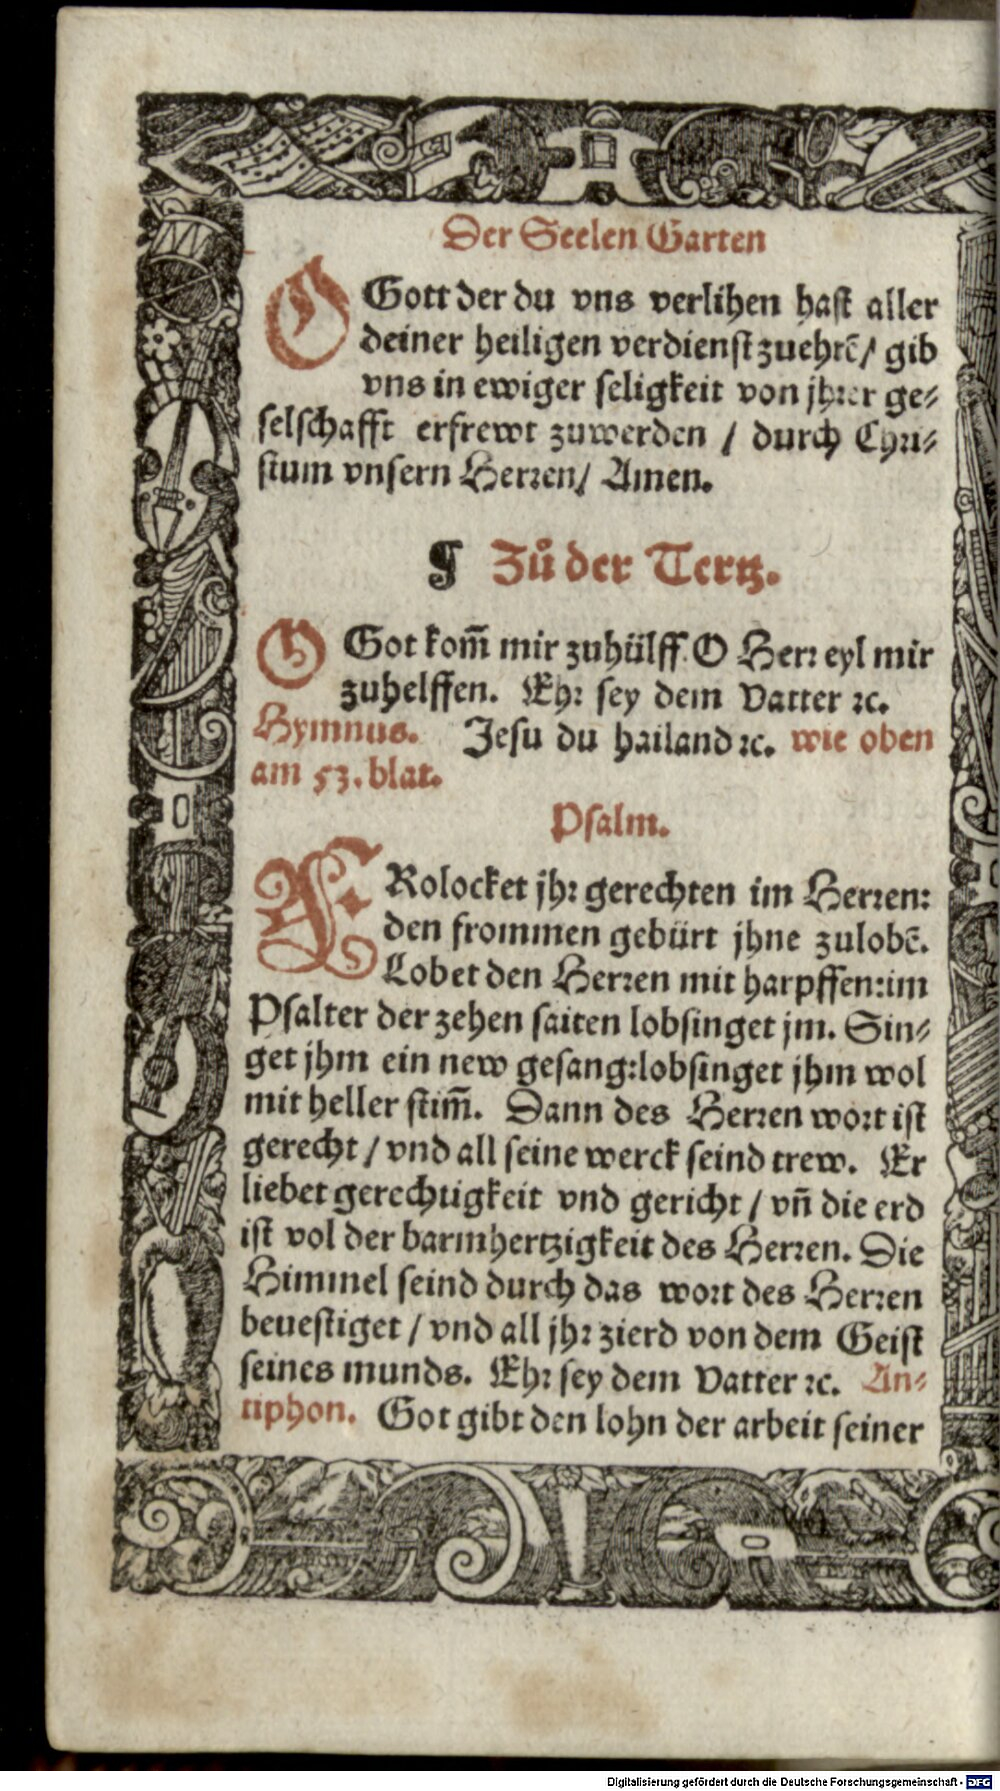 Der Seelen Garten
O Gott der du vns verlihen hast aller
deiner heiligen verdienst zuehrẽ/ gib
vns in ewiger seligkeit von jhrer ge-
selschafft erfrewt zuwerden / durch Chri-
stum vnsern Herren/ Amen.
¶ Zů der Tertz.
O Got kom̃ mir zuhülff. O Herr eyl mir
zuhelffen. Ehr sey dem Vatter ꝛc.
Hymnus. Jesu du hailand ꝛc. wie oben
am 53. blat.
Psalm.
FRolocket jhr gerechten im Herren:
den frommen gebürt jhne zulobẽ.
Lobet den Herren mit harpffen: im
Psalter der zehen saiten lobsinget jm. Sin-
get jhm ein new gesang: lobsinget jhm wol
mit heller stim̃. Dann des Herren wort ist
gerecht / vnd all seine werck seind trew. Er
liebet gerechtigkeit vnd gericht / vñ die erd
ist vol der barmhertzigkeit des Herren. Die
Himmel seind durch das wort des Herren
beuestiget / vnd all jhr zierd von dem Geist
seines munds. Ehr sey dem Vatter ꝛc. An-
tiphon. Got gibt den lohn der arbeit seiner
Digitalisierung gefördert durch die Deutsche Forschungsgemeinschaft - DFG